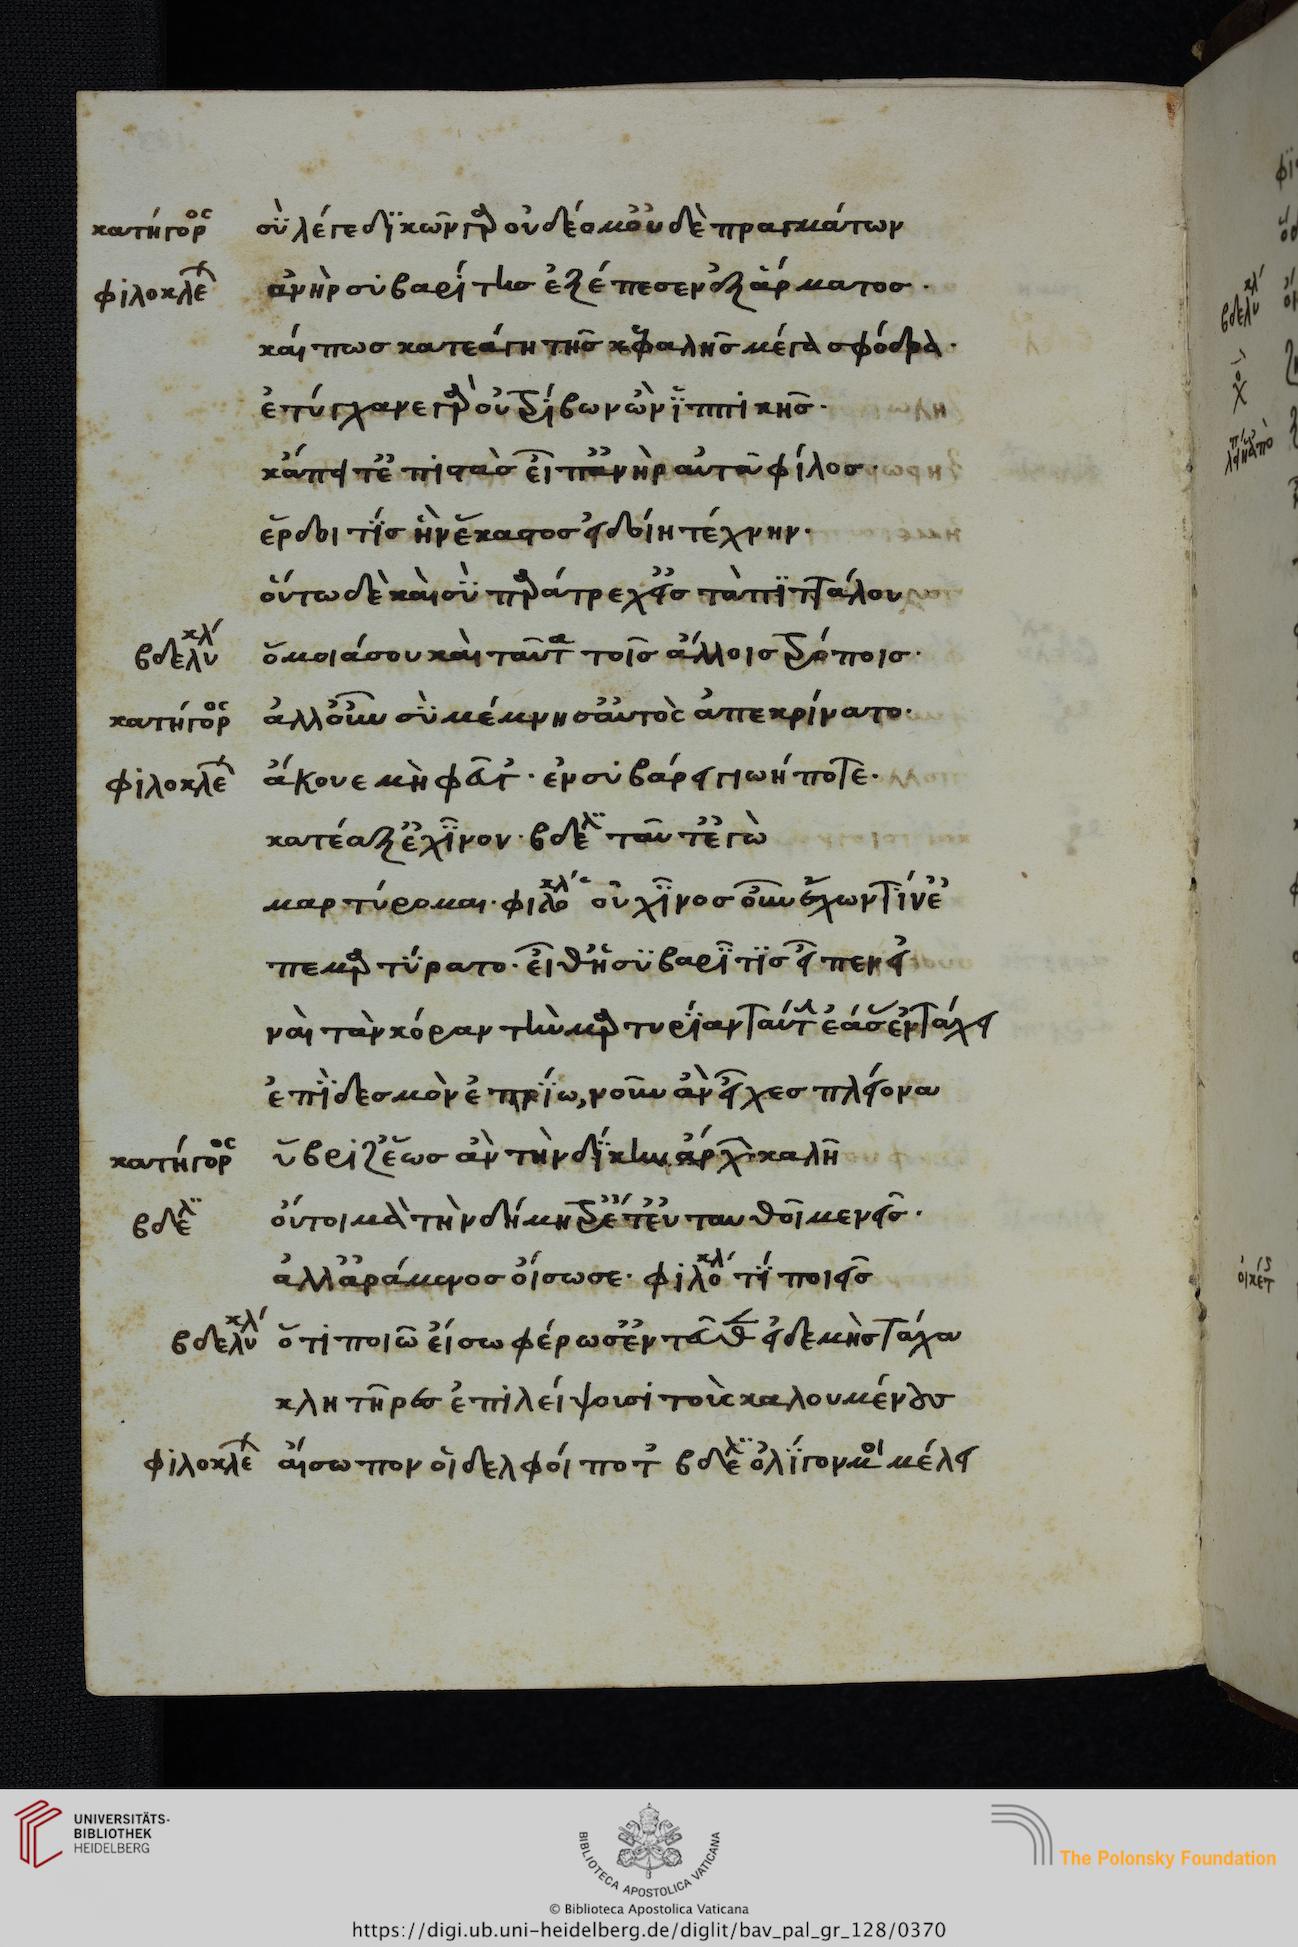 κατήγορος σὺ λέγε δικῶν γὰρ οὐ δέομ' οὐδὲ πραγμάτων
φιλοκλέ ἀνὴρ συβαρίτης ἐξέπεσεν ἐξ ἅρματος·
καί πως κατεάγη τῆς κεφαλῆς μέγα σφόδρα·
ἐτύγχανε γὰρ οὐ τρίβων ὢν ἱππικῆς·
κἄπειτ' ἐπιστὰς εἶπ' ἀνὴρ αὐτῶ φίλος·
ἔρδοι τίς ἣν ἕκαστος εἰδοίη τέχνην·
οὕτω δὲ καὶ σὺ παράτρεχ' εἰς τὰ πιττάλου
βδελυκλ ὅμοιά σου καὶ ταῦτα τοῖς ἄλλοις τρόποις·
κατήγορος ἀλλ' οὖν σὺ μέμνησ' αὐτὸς ἀπεκρίνατο·
φιλοκλέ ἄκουε μὴ φεῦγ'· ἐν συβάρει γυνή ποτε·
κατέαξ' ἐχῖνον· βδελ ταῦτ' ἐγὼ
μαρτύρομαι· φιλοκλ οὑχῖνος οὖν ἔχων τίν' ἐ
πεμαρτύρατο· εἶθ' ἡ συβαρῖτις εἶπεν εἰ
ναὶ τὰν κόραν τὴν μαρτυρίαν ταύτην ἐάσας ἐν τάχει
ἐπίδεσμον ἐπρίω, νοῦν ἂν εἶχες πλείονα
κατήγορος ὕβριζ' ἕως ἂν τὴν δίκην ἄρχων καλῆ
βδελ οὔτοι μὰ τὴν δήμητρ' ἔτ' ἐνταυθοῖ μενεῖς·
ἀλλ' ἀράμενος οἴσω σε· φιλοκλ τί ποιεῖς
βδελυκλ ὅτι ποιῶ εἴσω φέρω σ' ἐντεῦθεν εἰ δὲ μὴ τάχα
κλητῆρες ἐπιλείψουσι τοὺς καλουμένους
φιλοκλέ αἴσωπον οἱ δελφοί ποτ' βδελ ὀλίγον μοι μέλει
κλ
βδελυ
χο
οἰκέτ
UNIVERSITÄTS-
BIBLIOTHEK
HEIDELBERG
BIBLIOTECA APOSTOLICA VATICANA
The Polonsky Foundation
© Biblioteca Apostolica Vaticana
https://digi.ub.uni-heidelberg.de/diglit/bav_pal_gr_128/0370